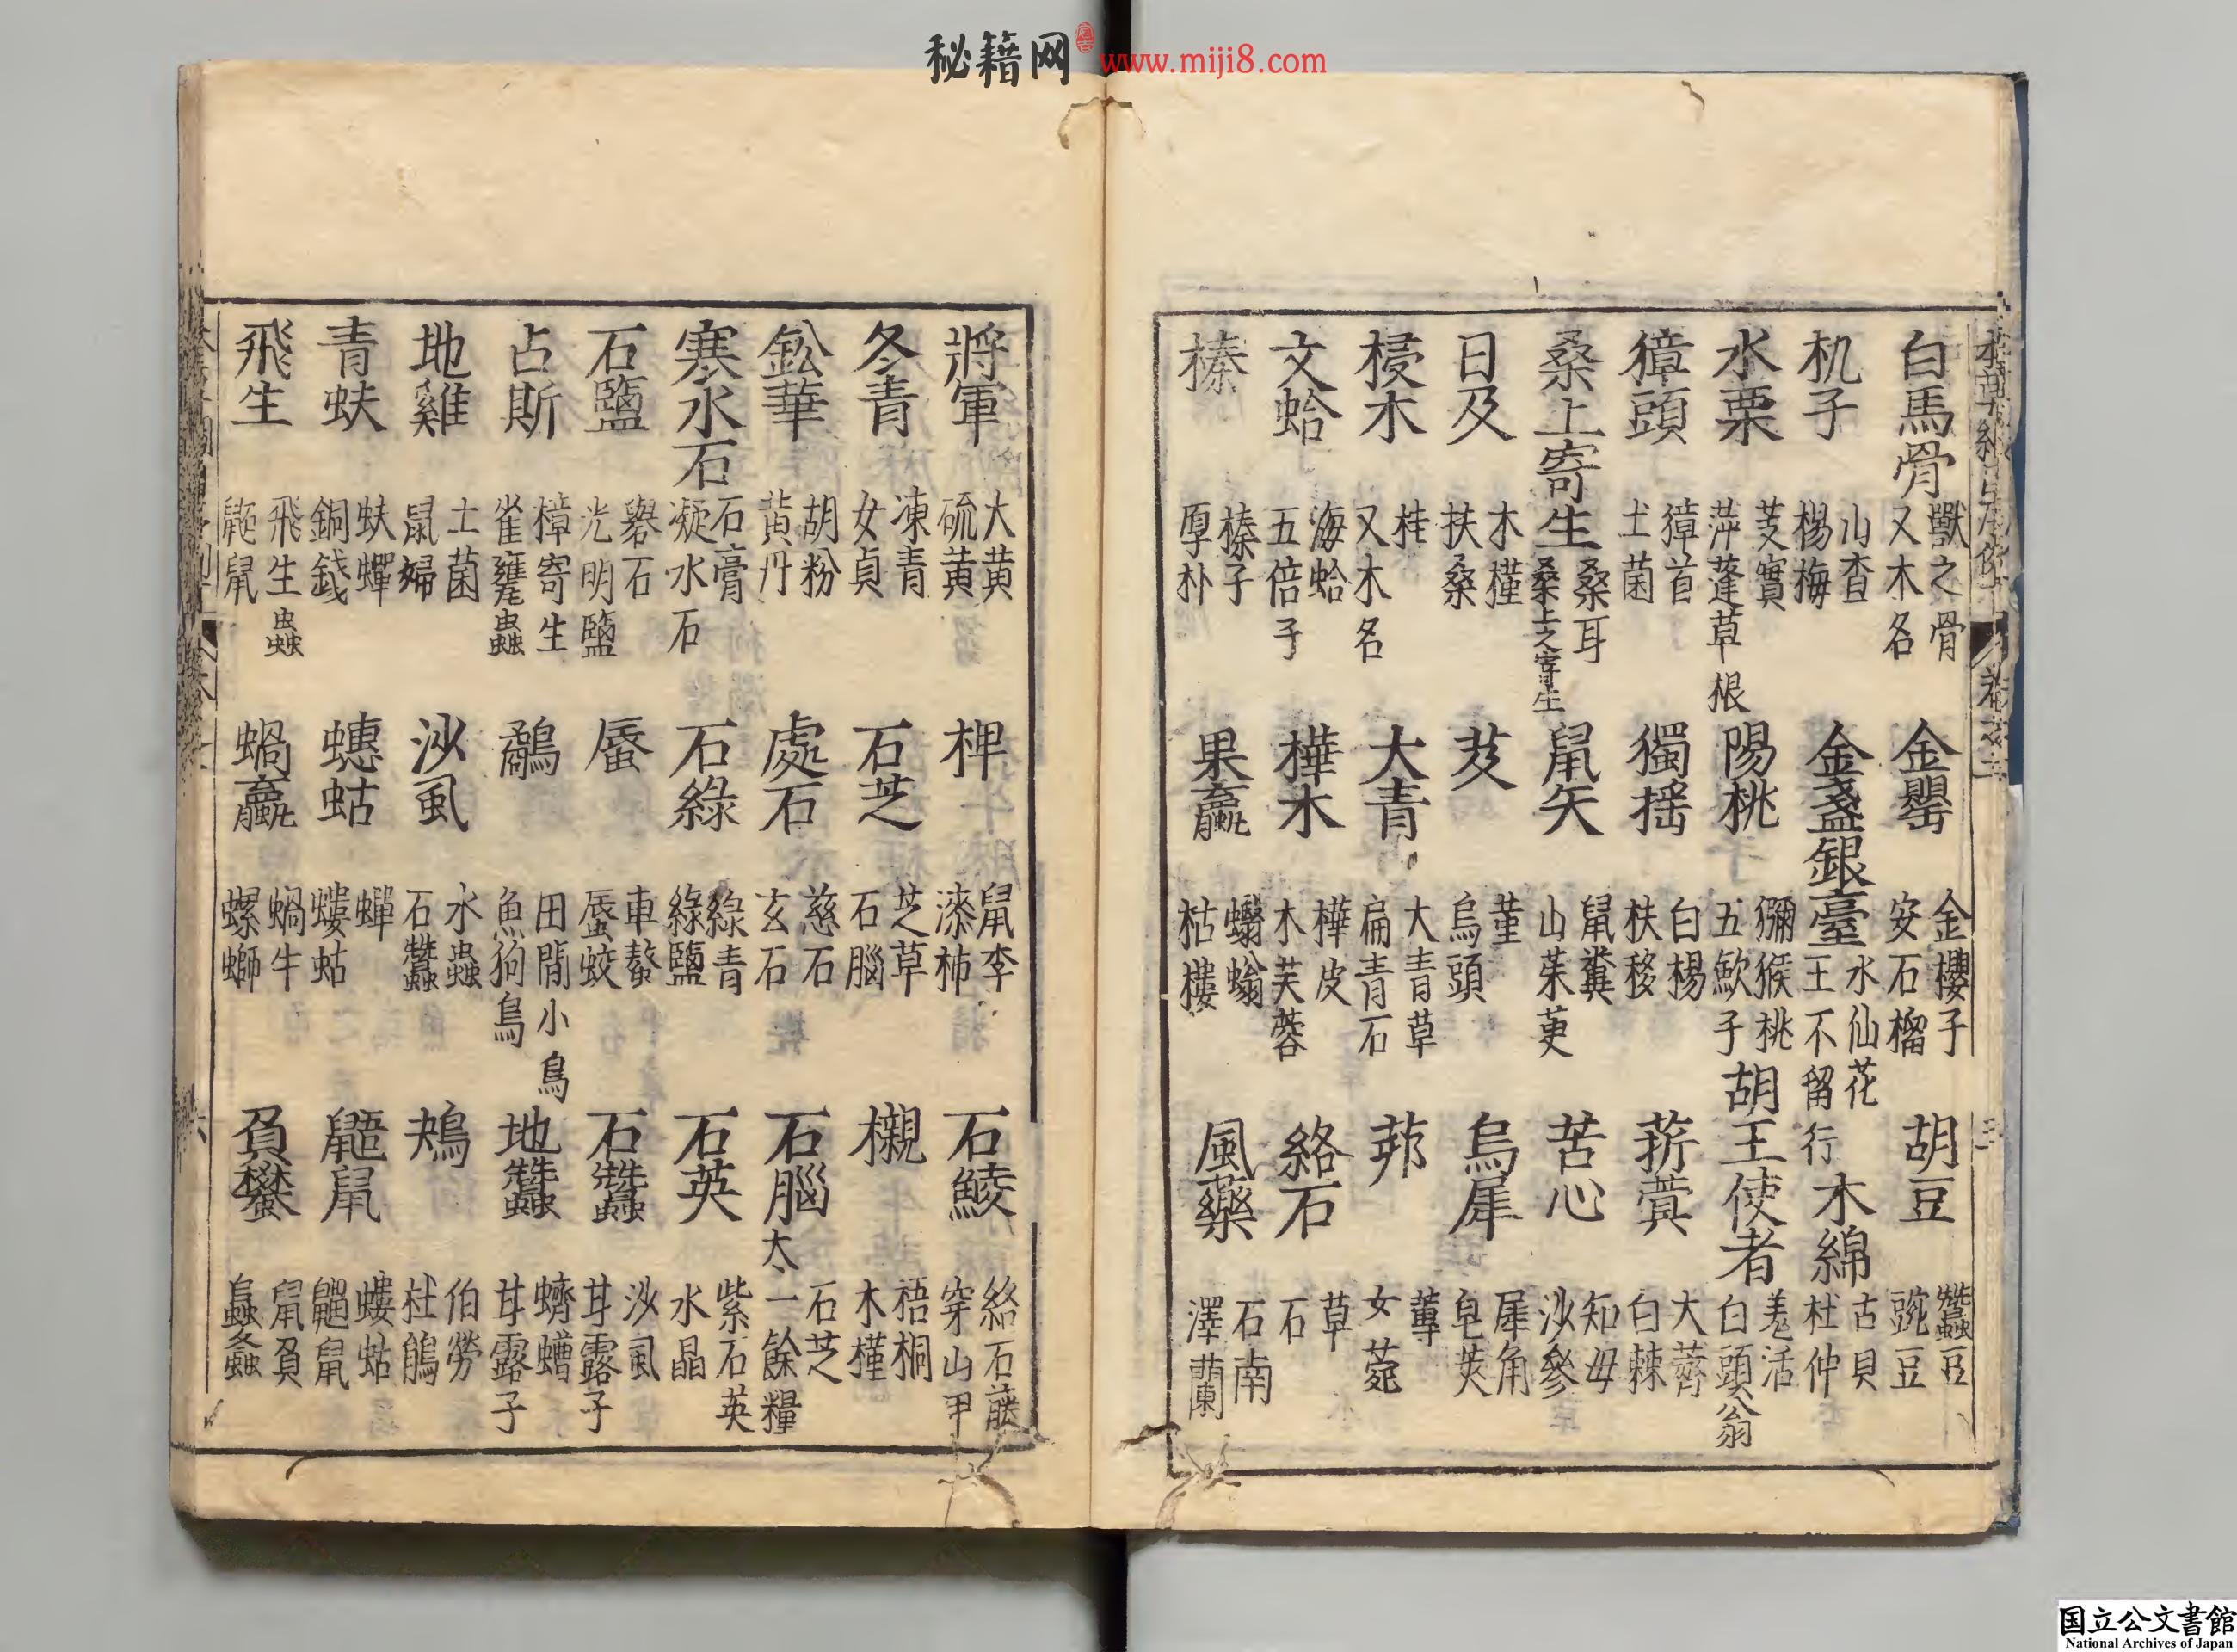 秘籍网 www.miji8.com
白馬骨 獸之骨 又木名 金罌 金櫻子 安石榴 胡豆 蠶豆 豌豆
机子 山查 楊梅 金盞銀臺 水仙花 王不留行 木綿 古貝 杜仲
水栗 芰實 萍蓬草根 陽桃 獼猴桃 五歛子 胡王使者 羗活 白頭翁
獐頭 獐首 土菌 獨搖 白楊 扶栘 菥蓂 大薺 白棘
桑上寄生 桑耳 桑上之寄生 鼠矢 鼠糞 山茱萸 苦心 知母 沙參
日及 木槿 扶桑 芨 菫 烏頭 烏犀 犀角 皂莢
梫木 桂 又木名 大青 大青草 扁青石 茆 蓴 女菀
文蛤 海蛤 五倍子 樺木 樺皮 木芙蓉 絡石 草 石
榛 榛子 厚朴 果蠃 蠮螉 栝樓 風藥 石南 澤蘭
將軍 大黄 硫黄 椑 鼠李 漆柿 石鯪 絡石藤 穿山甲
冬青 凍青 女貞 石芝 芝草 石腦 櫬 梧桐 木槿
鈆華 胡粉 黄丹 處石 慈石 玄石 石腦 石芝 太一餘糧
寒水石 石膏 凝水石 石綠 綠青 綠鹽 石英 紫石英 水晶
石鹽 礜石 光明鹽 蜃 車螯 蜃蛟 石蠶 沙虱 甘露子
占斯 樟寄生 雀甕蟲 鷸 田間小鳥 魚狗鳥 地蠶 蠐螬 甘露子
地雞 土菌 鼠婦 沙虱 水蟲 石蠶 鴂 伯勞 杜鵑
青蚨 蚨蟬 銅錢 蟪蛄 蟬 螻蛄 鼯鼠 螻蛄 鼺鼠
飛生 飛生虫 鼯鼠 蝸蠃 蝸牛 螺螄 負蠜 鼠負 蟲螽
国立公文書館
National Archives of Japan